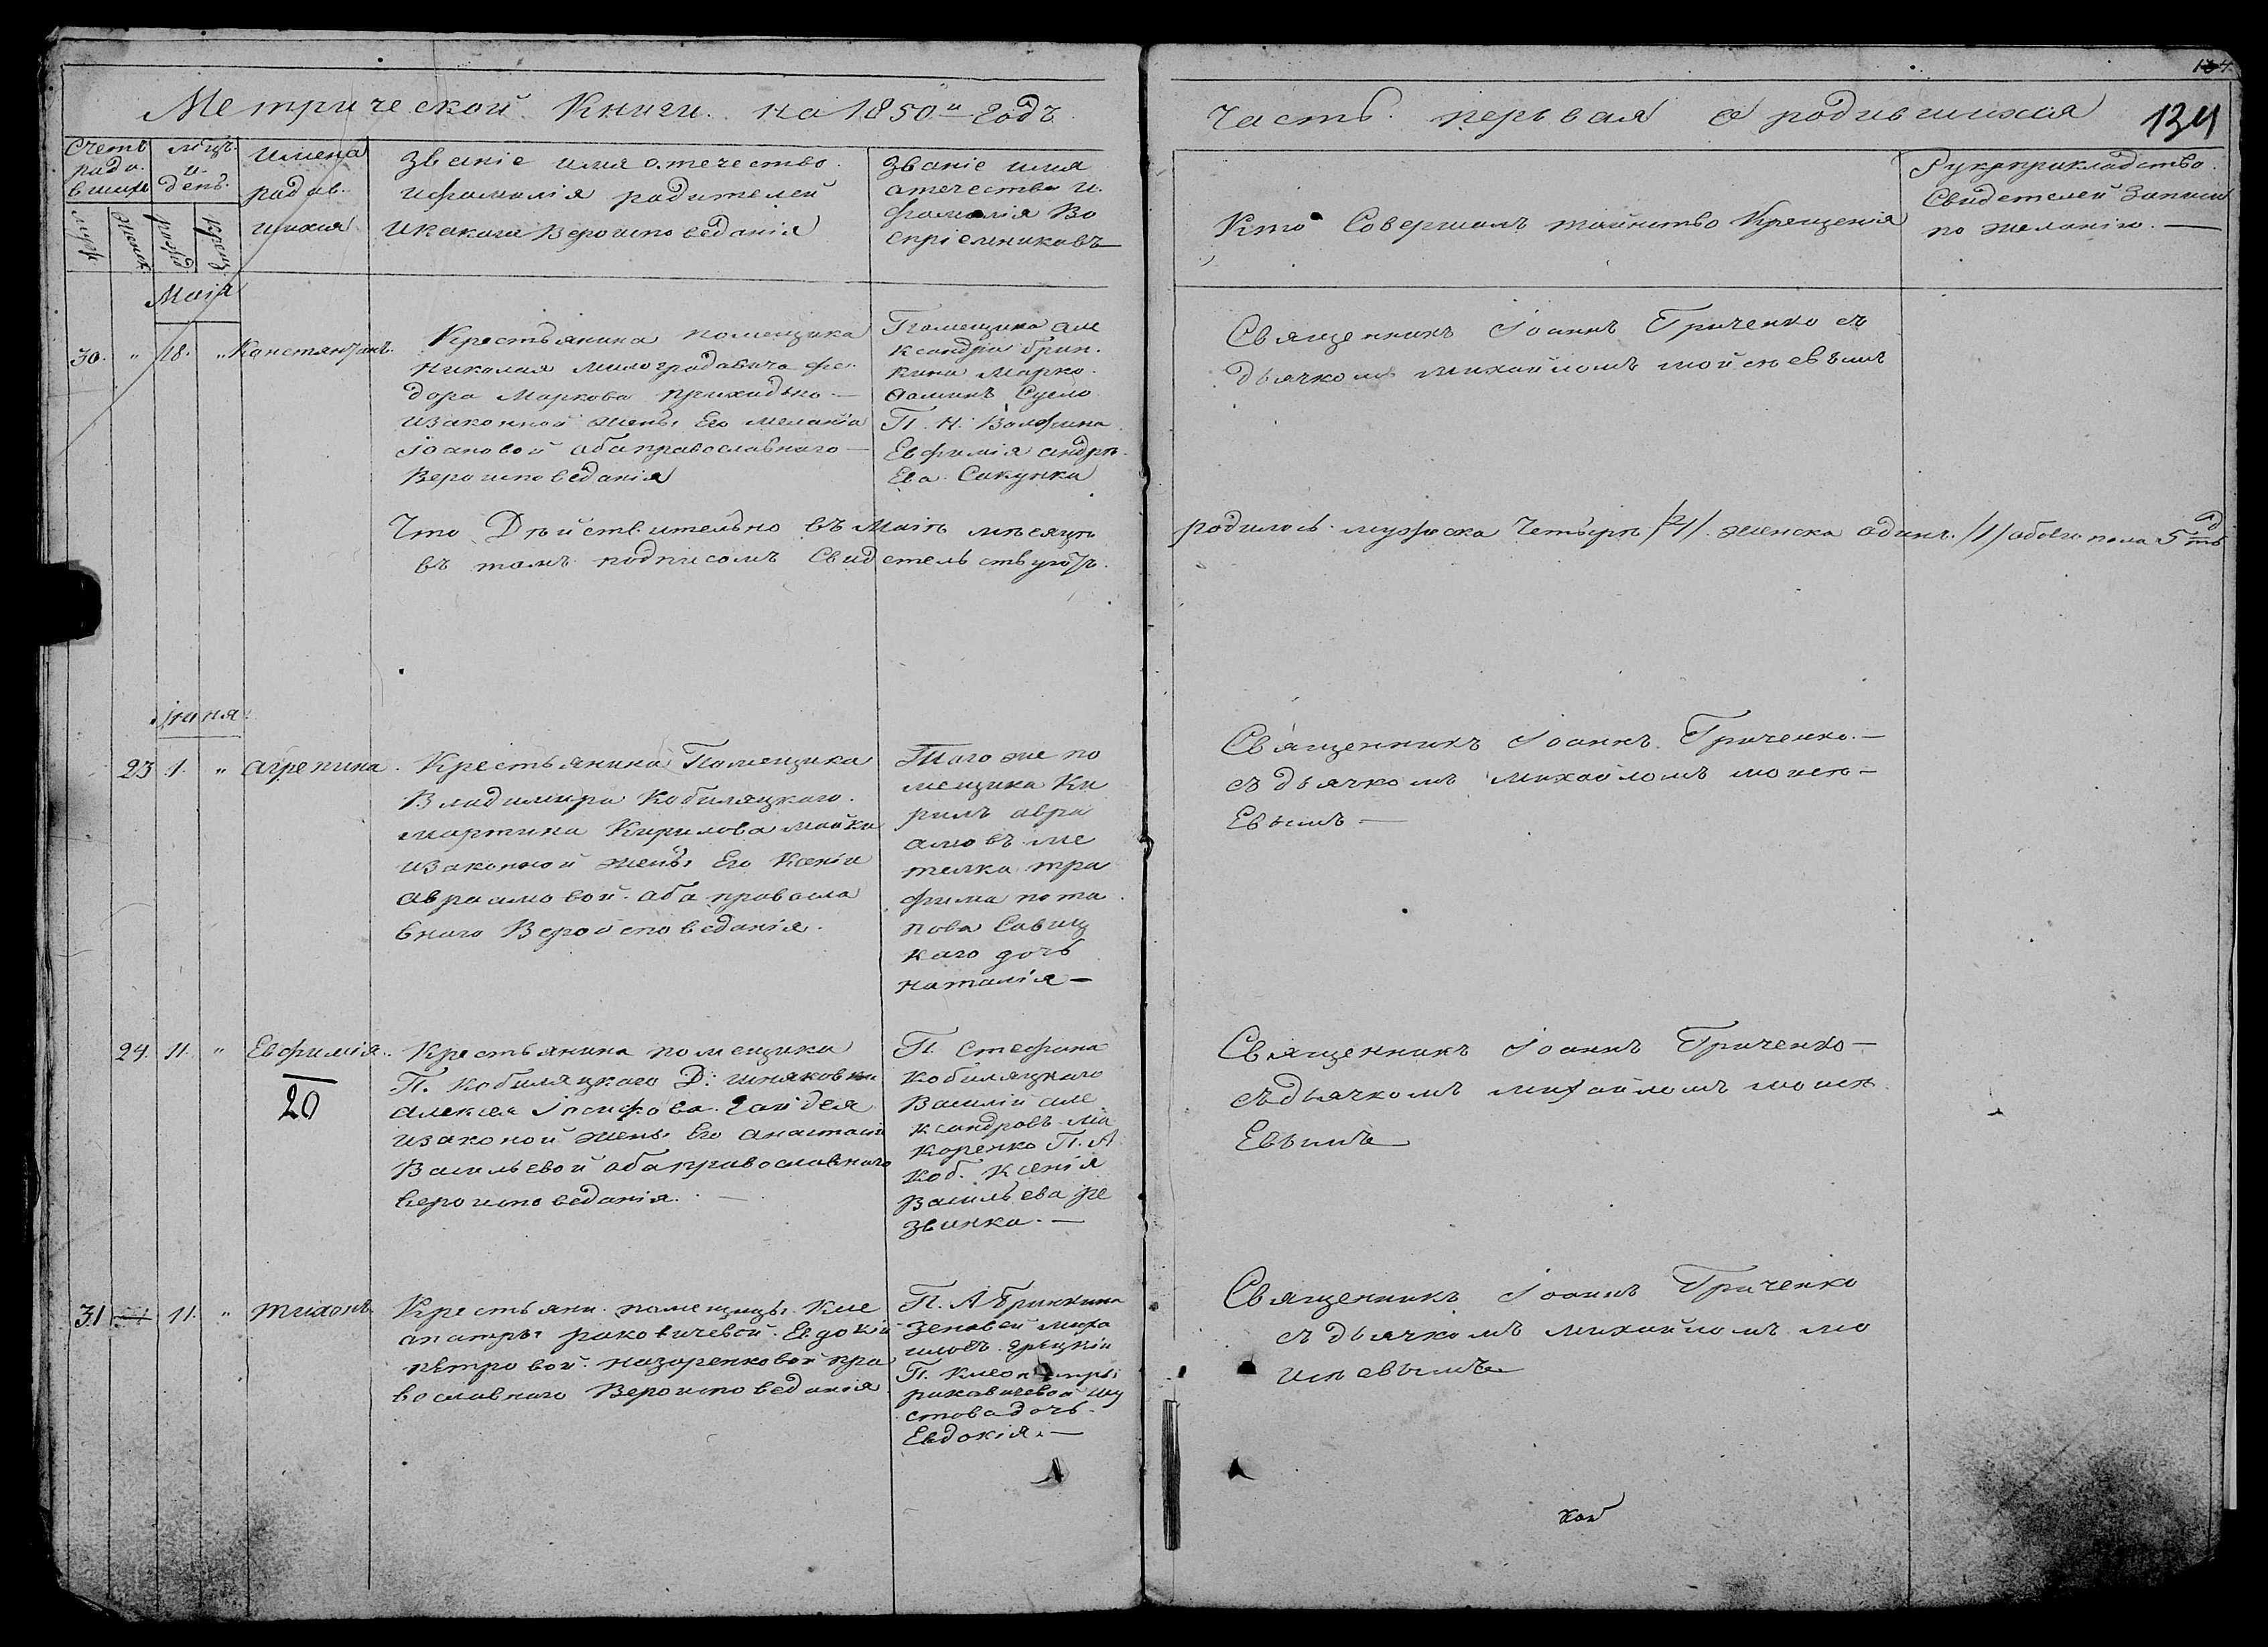 Метрической Книги на 1850й Годъ
Часть первая о родившихся
134
Счетъ
родив
шихся
мцъ
и
день
Имена
родив
шихся
Званіе имя отечество
и фамилія родителей
и какаго Вероисповеданія
Званіе имя
отечество и
фамилія Во
спріемниковъ
Кто Совершалъ таинство Крещенія
Рукоприкладство
Свидетелей Записи
по желанію
Маія
30. " 18. " Констянтинъ.
Крестьянина помещика
Николая Милоградовича Фе
дора Маркова Приходько
и законной жены Его Меланіи
Іоановой оба православнаго
Вероисповеданія
Помещика Але
ксандра Брин
кина Марко
П. Н.
Евфимія Андре
ева Сакунка
Священникъ Іоаннъ Гриченко съ
дьячкомъ Михайломъ Мойсѣевымъ
Что Дѣйствительно въ Маіѣ мѣсяцѣ
родилось мужеска Четыре /4/ женска одинъ /1/ обоего пола 5ть
въ томъ подписомъ Свидетельствуютъ
Іюня
23 1. " Агрепина
Крестьянина Помещика
Владимира Кобиляцкаго
Мартина Кирилова
и законной жены Его Ксеніи
Авраамовой оба правосла
внаго Вероисповеданія.
Того же по
мещика Ки
рилъ Авра
амовъ Ме
телка Тро
фима Пота
пова Савиц
каго дочь
Наталія
Священникъ Іоаннъ Гриченко
съ дьячкомъ Михайломъ Мойсѣ
Евымъ
24. 11. " Евфимія.
20
Крестьянина помещика
П. Кобиляцкаго
Алексея Іосифова Гайдея
и законой жены Его Анастасіи
Васильевой оба православнаго
вероисповеданія.
П. Стефана
Кобиляцкаго
Василій Але
ксандровъ Ма
каренко П. А
Коб. Ксенія
Васильева Ре
звинка
Священникъ Іоаннъ Гриченко
съ дьячкомъ Михайломъ Мойсѣ
Евымъ
31 11. " Тихонъ
Крестьяни помещицы Кле
опатры Раковичевой Евдокіи
Петровой Назоренковой пра
вославнаго Вероисповеданія
П. А Бринкина
Зеновей Миха
иловъ Грецкій
П. Клеопатры
Раковичевой Шу
стова дочь
Евдокія.
Священникъ Іоаннъ Гриченко
съ дьячкомъ Михайломъ Мо
исѣевымъ